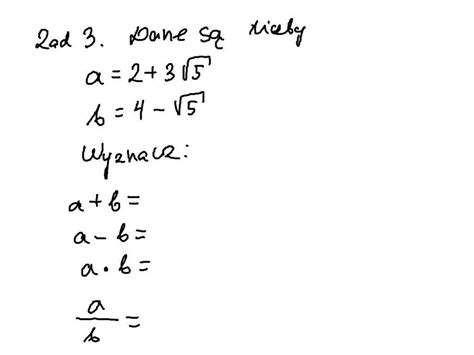 Zad 3. Dane są liczby
a = 2 + 3√5
b = 4 - √5
Wyznacz:
a + b =
a - b =
a • b =
a/b =